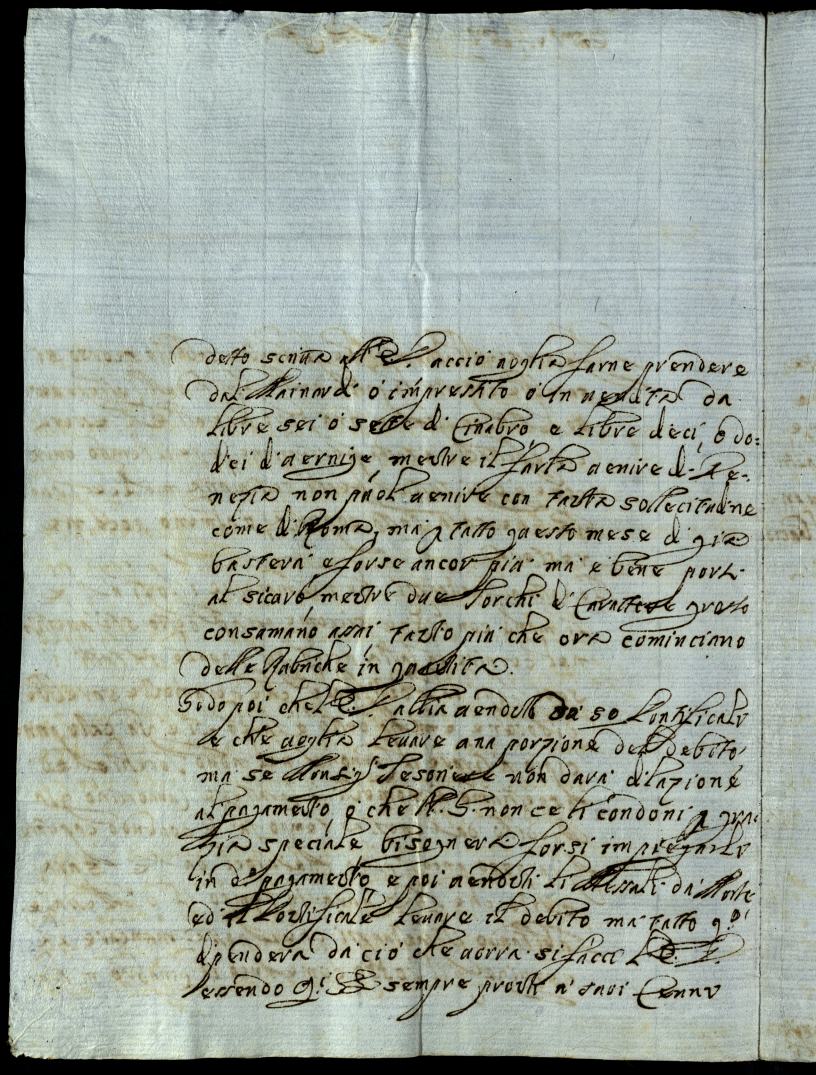 detto scriva all' E. S. acciò voglia farne prendere
dal Mainardi ò imprestito ò in vendita da
libre sei ò sette di Cinabro e libre deci, ò do=
dici di vernige, mentre il farla venire di Ve=
nezia non può venire con tanta sollecitudine
come di Roma, ma p tutto questo mese di già
basterà e forse ancor più ma è bene porli
al sicuro, mentre due Torchi di Carattere grosso
consumano assai tanto più che ora cominciano
delle Rubriche in quantità.
Godo poi che l'E. S. abbia venduti da 50 Pontificali
e che voglia levare una porzione del debito,
ma se Monsig.r Tesoriere non darà dilazione
al pagamento, ò che N. S. non ce li condoni p gra=
zia speciale bisognerà forsi impiegarli
in d.o pagamento, e poi venduti li Messali da Morti
ed il Pontificale levare il debito ma tutto q.o
dipenderà da ciò che vorrà si facci l'E. S.
essendo q.i SS. sempre pronti a' suoi Cenni